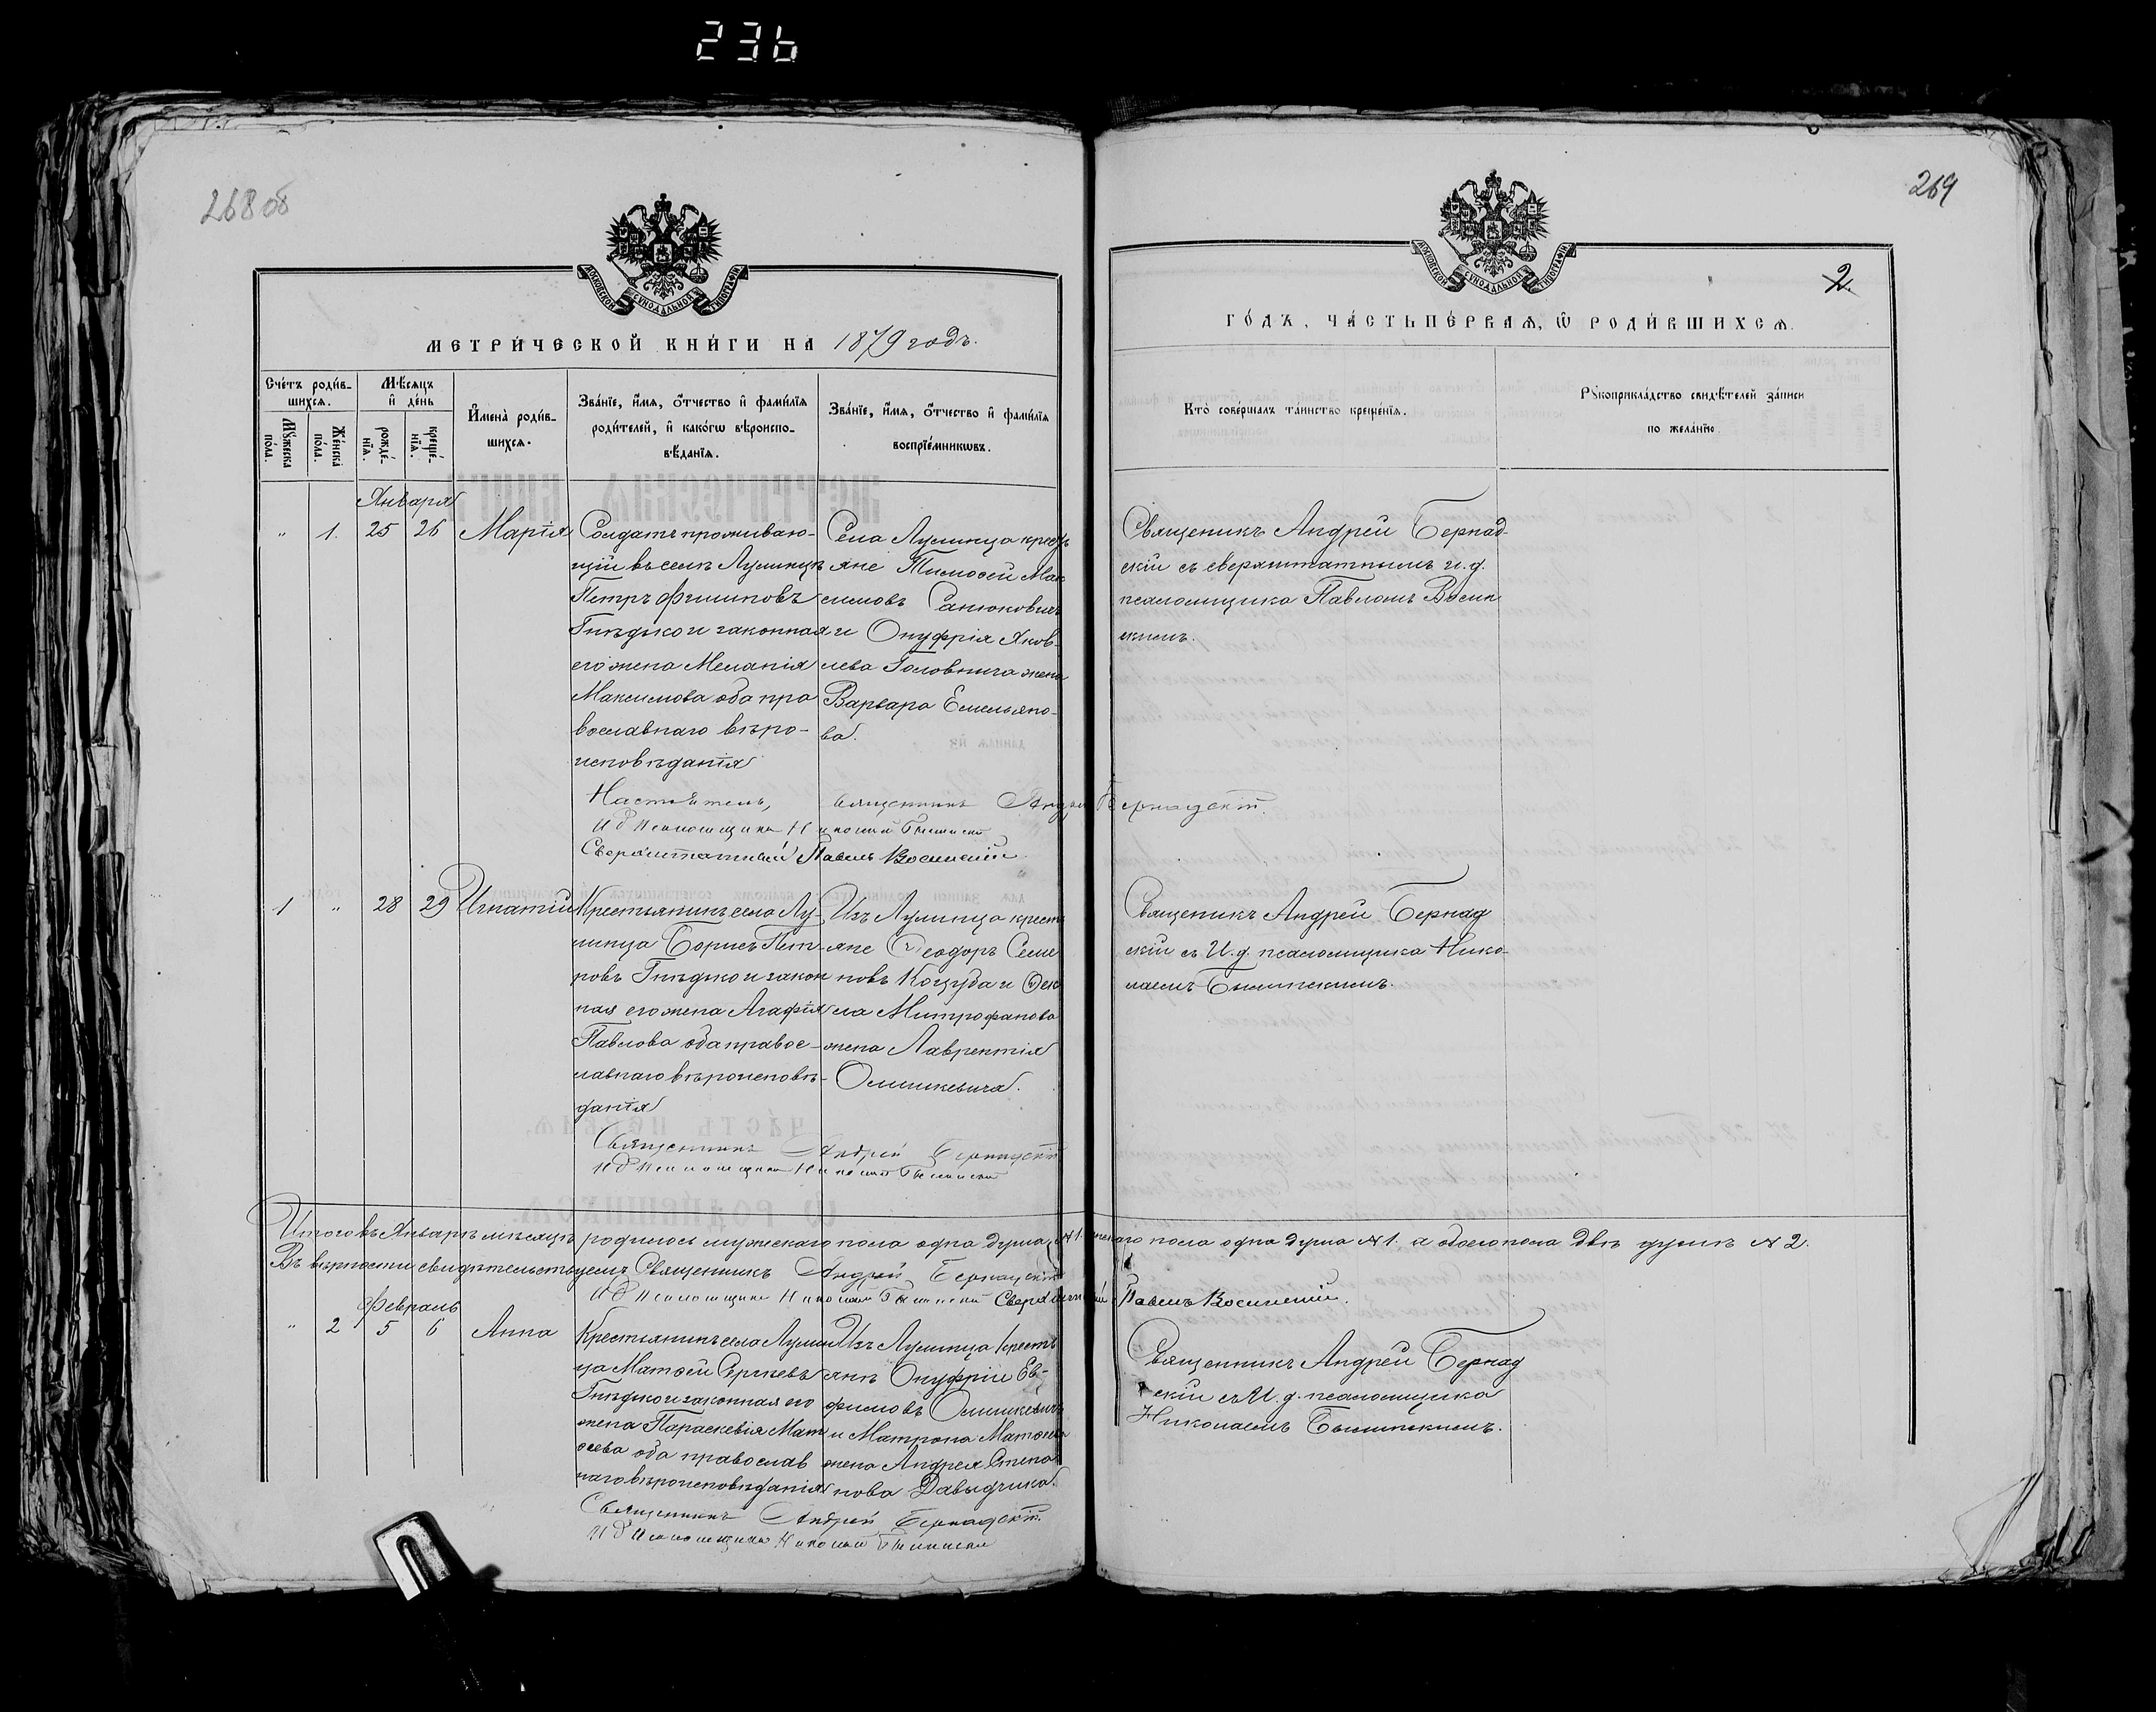 236
268 об
269
МОСКОВСКОЙ СѴНОДАЛЬНОЙ ТИПОГРАФІИ
МОСКОВСКОЙ СѴНОДАЛЬНОЙ ТИПОГРАФІИ
2.
МЕТРИ́ЧЕСКОЙ КНИ́ГИ НА 1879 годъ.
ГО́ДЪ, ЧА́СТЬ ПЕ́РВАѦ, Ѽ РОДИ́ВШИХСѦ.
Сче́тъ роди́в-
шихсѧ.
Мꙋ́жеска по́ла.
Же́нска по́ла.
Мѣ́сѧцъ
и҆ де́нь
рожде́-
нїѧ.
креще́-
нїѧ.
И҆мена̀ роди́в-
шихсѧ.
Зва́нїе, и҆́мѧ, ѻ҆́тчество и҆ фами́лїѧ
роди́телей, и҆ како́гѡ вѣроиспо-
вѣ́данїѧ.
Зва́нїе, и҆́мѧ, ѻ҆́тчество и҆ фами́лїѧ
воспрїе́мникѡвъ.
Кто̀ соверша́лъ та́инство креще́нїѧ.
Рꙋкоприкла́дство свидѣ́телей за́писи
по жела́нїю.
Января
" 1. 25 26 Марія
Солдатъ проживаю-
щій въ селѣ Лулинцѣ
Петръ Филиповъ
Гнѣдько и законная
его жена Меланія
Максимова оба пра
вославнаго вѣро-
исповѣданія
Села Лулинца кресть
яне Тимоѳей Мак
симовъ Санюковичъ
и Онуфрія Яков-
лева Головнича жена
Варвара Емельяно-
ва.
Священикъ Андрей Бернад-
скій съ сверхштатнымъ и. д.
псаломщика Павломъ Восин
скимъ.
Настоятель, Священникъ Андрей Бернадскій.
И д Псаломщика Николай
Сверхштатный Павелъ Восинскій.
1 " 28 29 Игнатій
Крестьянинъ села Лу-
линца Борисъ Пет-
ровъ Гнѣдько и закон
ная его жена Агафія
Павлова оба правос-
лавнаго вѣроисповѣ-
данія
Изъ Лулинца кресть
яне Ѳеодоръ Семе
новъ Коцуба и Ѳек
ла Митрофанова
жена Лаврентія
Олишкевича.
Священикъ Андрей Бернад
скій съ И. д. псаломщика Нико-
лаемъ
Священникъ Андрей Бернадскій
И д Псаломщика Николай
Итого въ Январѣ мѣсяцѣ родилось мужескаго пола одна душа, № 1. женскаго пола одна душа № 1. а обоего пола двѣ души № 2.
Въ вѣрности свидѣтельствуемъ Священникъ Андрей Бернадскій
И д Псаломщика Николай Сверхштатный Павелъ Восинскій.
Февраль
" 2 5 6 Анна
Крестьянинъ села Лулин
ца Матѳей Сергѣевъ
Гнѣдько и законная его
жена Параскевія Мат
ѳеева оба православ
наго вѣроисповѣданія
Изъ Лулинца крестъ
янѣ Онуфрій Ев-
фимовъ Олишкевичъ
и Матрона Матѳеева
жена Андрея Степа
нова Давыдчика.
Священникъ Андрей Бернад
скій съ И. д. псаломщика
Николаемъ
Священникъ Андрей Бернадскій.
И д Псаломщика Николай